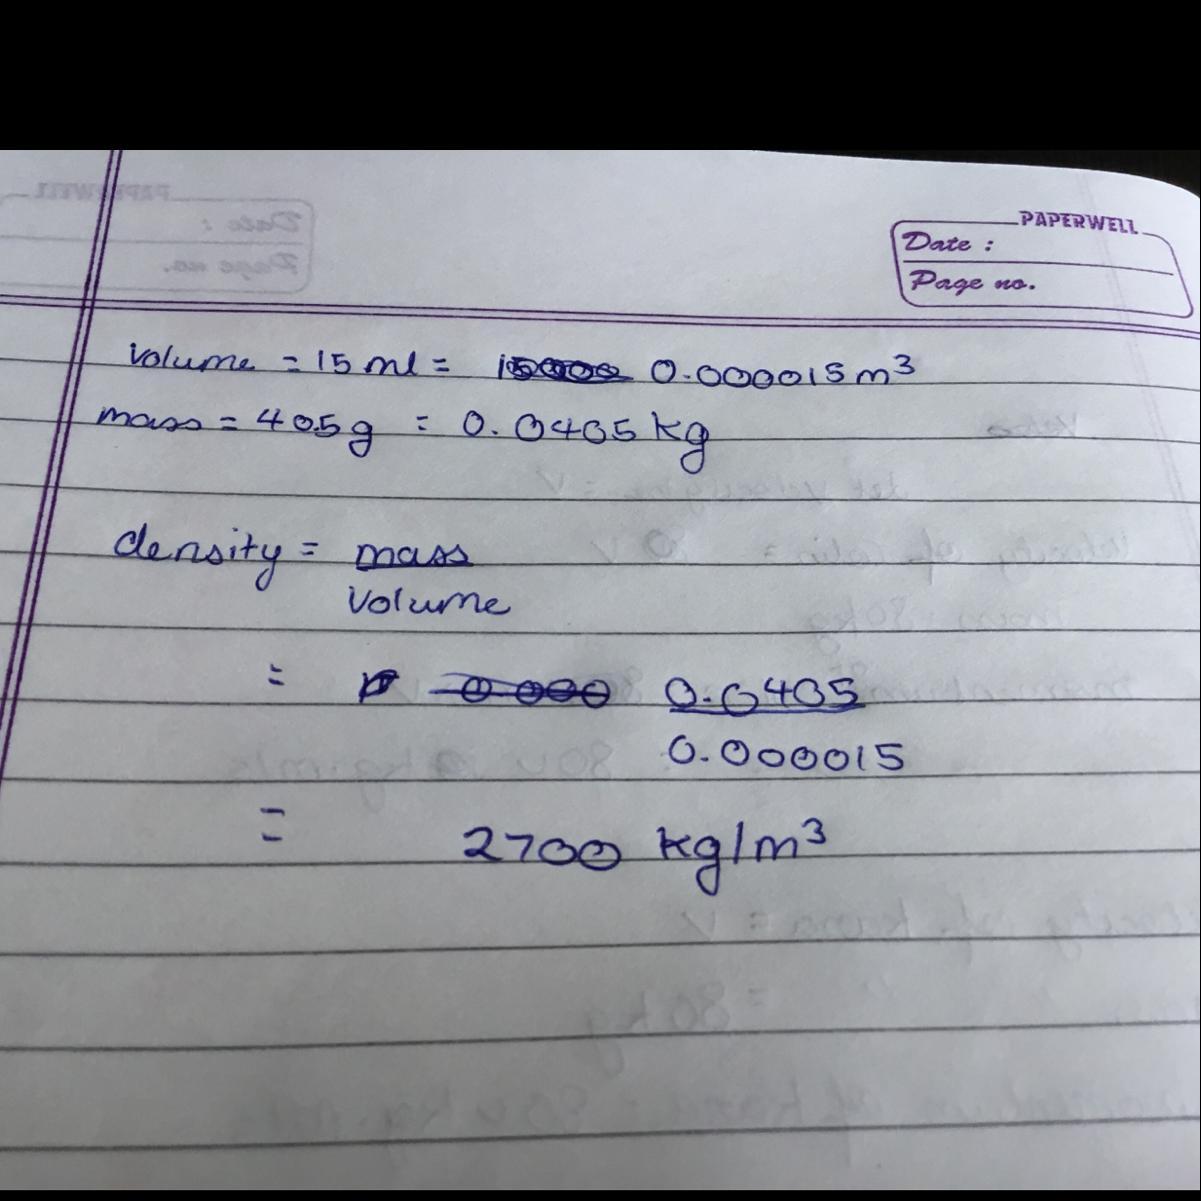 PAPERWELL
Date :
Page no.
Volume = 15 ml = 0.000015 m³
mass = 40.5g = 0.0405 kg
density = mass
Volume
= 0.0405
0.000015
= 2700 kg/m³